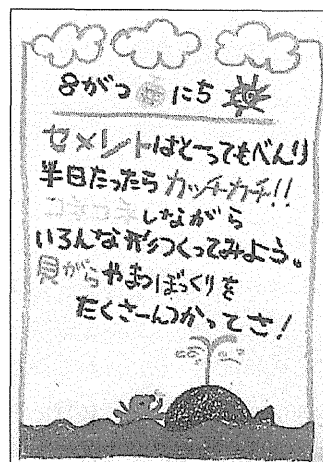 8がつ にち
セメントはとーってもべんり
半日たったらカッチカチ!!
コネコネしながら
いろんな形つくってみよう。
貝がらやまつぼっくりを
たくさーんつかってさ!